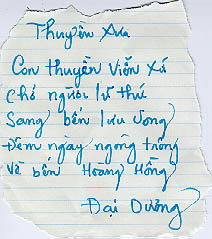 Thuyền Xưa
Con thuyền Viễn Xứ
Chở người lữ thứ
Sang bến lưu vong
Đêm ngày ngóng trông
Về bến Hoàng Hồng
Đại Dương